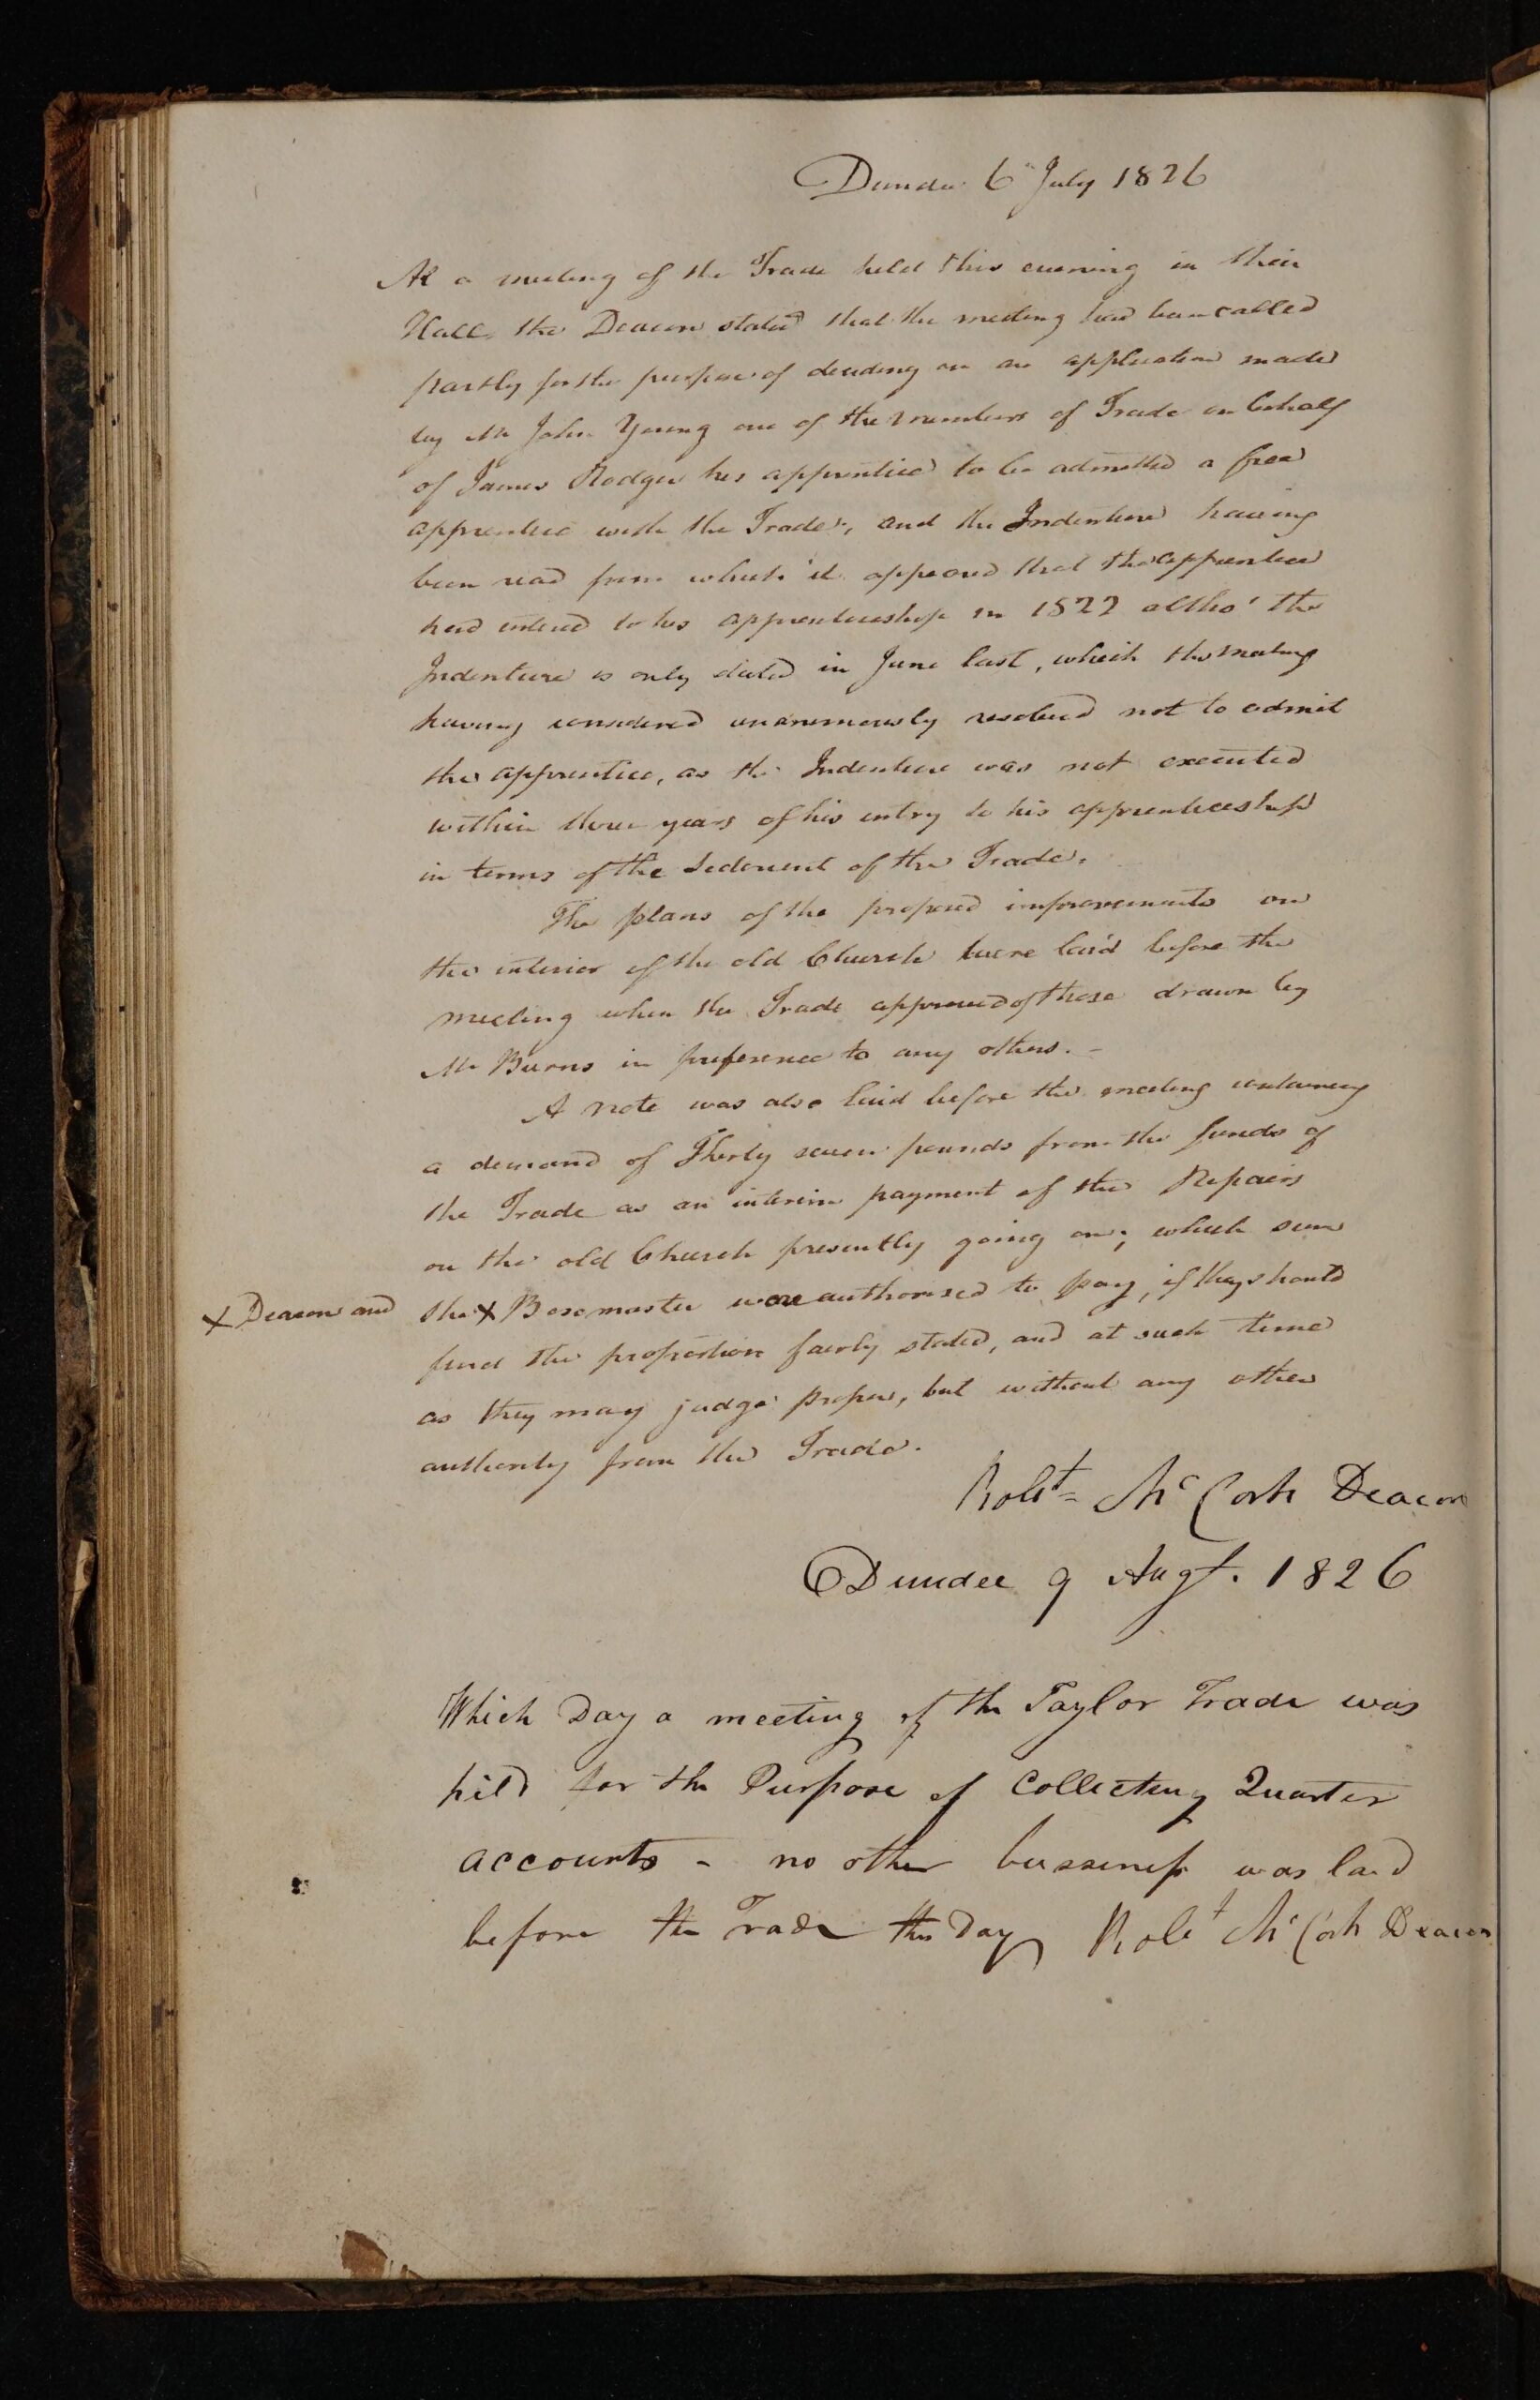 Dundee 6th July 1826
At a meeting of the Trade held this evening in their
Hall the Deacon stated that the meeting had been called
partly for the purpose of deciding on an application made
by Mr John Young one of the members of Trade on behalf
of James Rodger his apprentice to be admitted a free
apprentice with the Trade, and the Indenture having
been read from which it appeared that the apprentice
had entered to his apprenticeship in 1822 altho' the
Indenture is only dated in June last, which the meeting
having considered unanimously resolved not to admit
the apprentice, as the Indenture was not executed
within three years of his entry to his apprenticeship
in terms of the Sederunt of the Trade.
The plans of the proposed improvements on
the interior of the old Church were laid before the
meeting when the Trade approved of those drawn by
Mr Burns in preference to any others. –
A note was also laid before the meeting containing
a demand of Thirty seven pounds from the funds of
the Trade as an interim payment of the Repairs
on the old Church presently going on; which sum
x Deacon and
the x Boxmaster were authorised to pay, if they should
find the proportion fairly stated, and at such time
as they may judge proper, but without any other
authority from the Trade.
Robt= Mc Cosh Deacon
Dundee 9 Augt. 1826
Which Day a meeting of the Taylor Trade was
hild for the Purpose of Collecting Quarter
accounts - no other bussiness was laid
before the Trade this Day Robt Mc Cosh Deacon